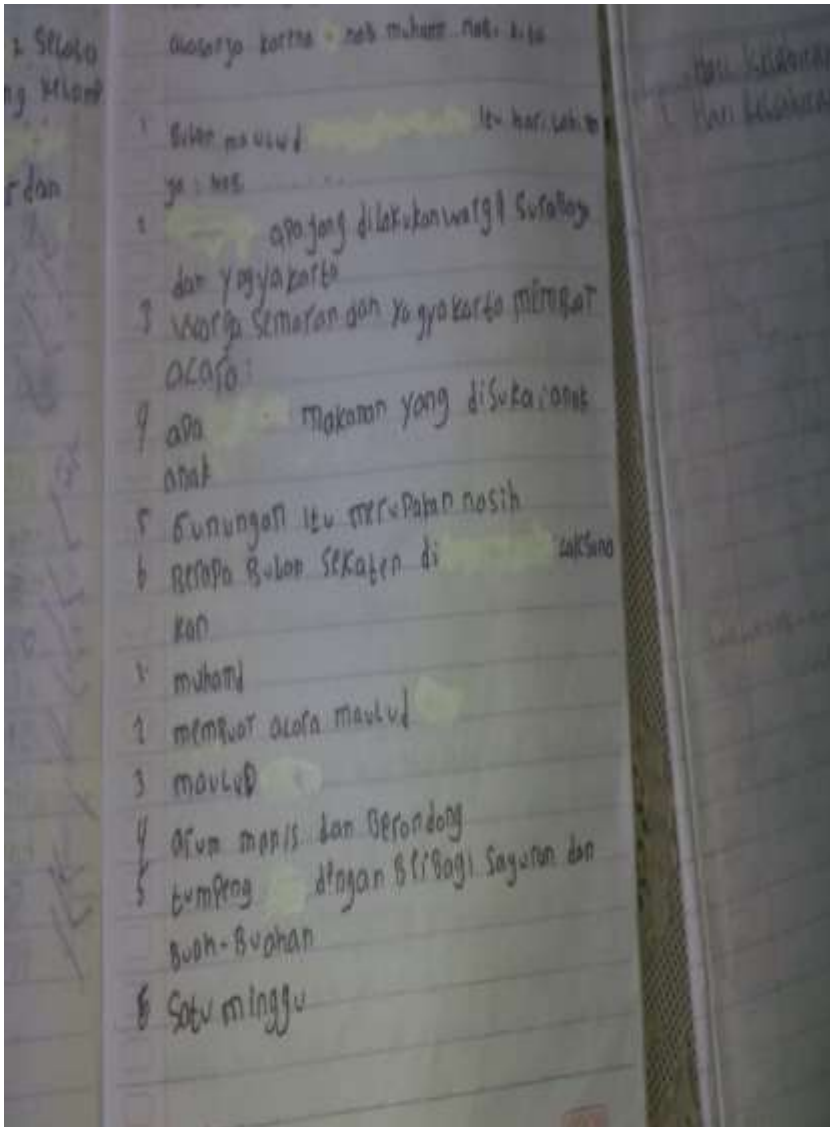 2 Selalu
r dan
karena nabi muham nabi kita
1 Bulan maulud itu hari
ya : nabi ......
2 apa yang dilakukan warga Surabaya
dan yogyakarta
3 warga Semaran dan yogyakarta membuat
acara :
4 apa makanan yang disukai anak
anak
5 Gunungan itu merupakan nasih
6 Berapa Bulan Sekaten di laksana
kan
1 muhamd
2 membuat acara maulud
3 mauluD
4 arum manis dan Berondong
5 tumpeng dengan Berbagi Sayuran dan
Buah-Buahan
6 Satu minggu
Hari
Hari